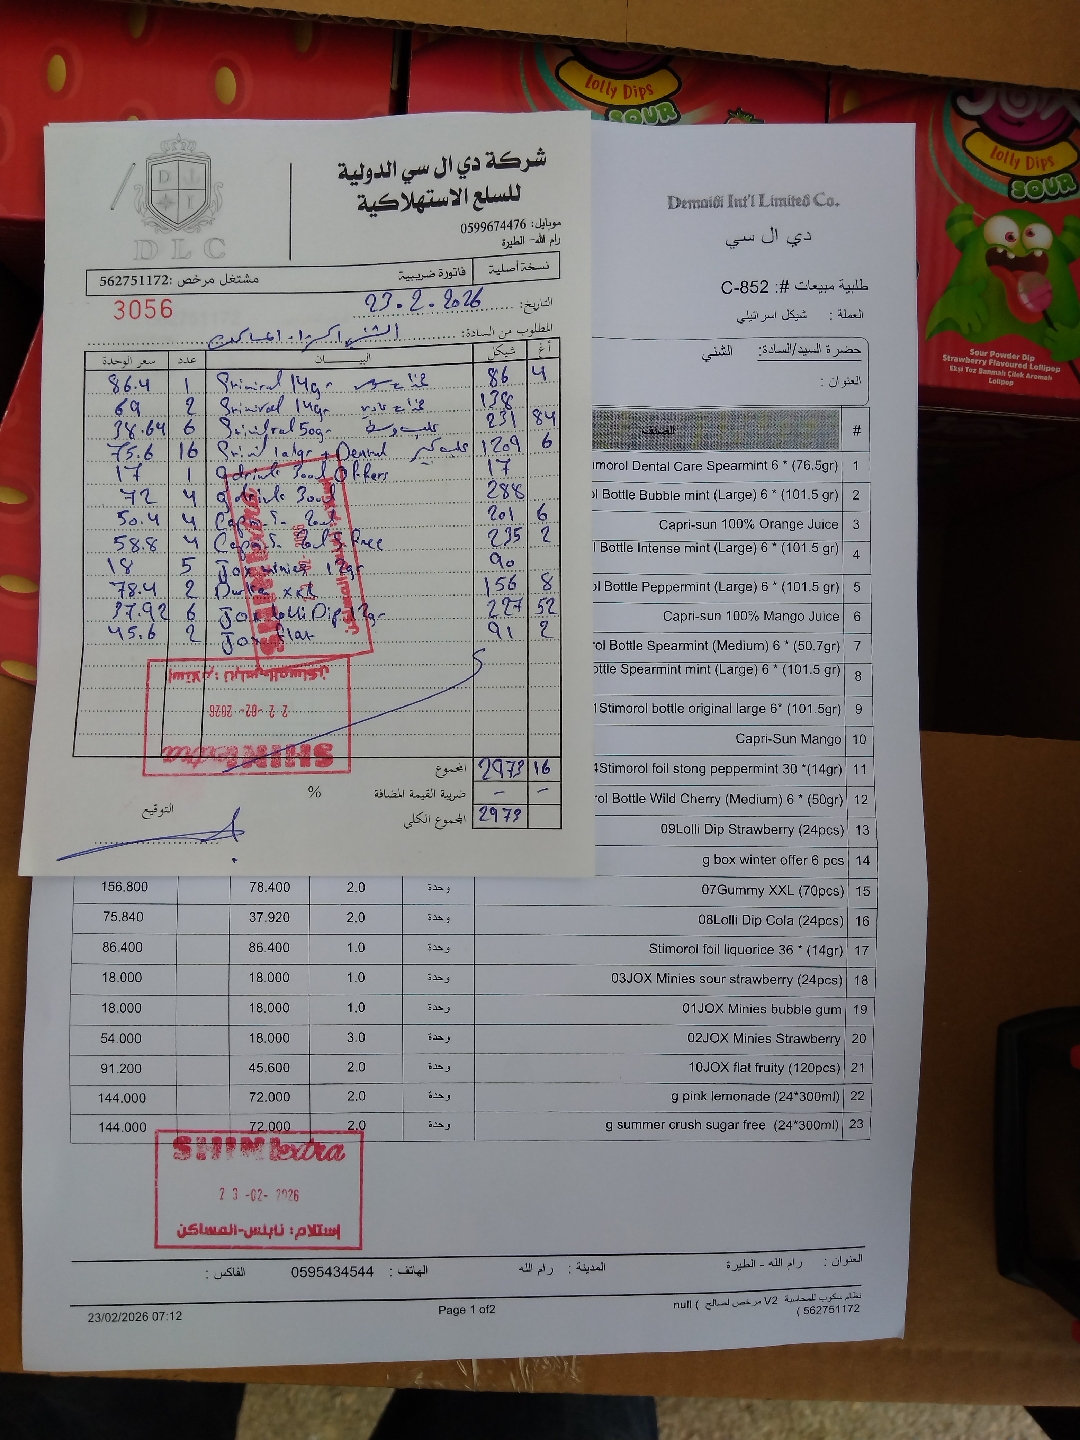 Lolly Dips
SOUR
Lolly Dips
SOUR
Sour Powder Dip
Strawberry Flavoured Lollipop
Ekşi Toz Banmalı Çilek Aromalı
Lolipop
شركة دي ال سي الدولية
للسلع الاستهلاكية
DLC
موبايل: 0599674476
رام الله- الطيرة
نسخة أصلية فاتورة ضريبية مشتغل مرخص :562751172
3056
التاريخ: 23.2.2026
المطلوب من السادة:
أغ شيكل البيـــــان عدد سعر الوحدة
86.4 1 14gr 86 4
69 2 14gr 138
38.64 6 50gr 231 84
75.6 16 1209 6
17 1 17
72 4 288
50.4 4 201 6
58.8 4 free 235 2
18 5 Jox minies 12gr 90
78.4 2 xxl 156 8
37.92 6 Jox Lolli Dip 12gr 227 52
45.6 2 Jox flat 91 2
إستلام: نابلس-المساكن
22-02-2026
SHINI extra
المجموع 2973 16
ضريبة القيمة المضافة % - -
المجموع الكلي 2973
التوقيع
Demaidi Int'l Limited Co.
دي ال سي
طلبية مبيعات #: C-852
العملة : شيكل اسرائيلي
حضرة السيد/السادة: الشني
العنوان :
# الصنف
1 imorol Dental Care Spearmint 6 * (76.5gr)
2 ol Bottle Bubble mint (Large) 6 * (101.5 gr)
3 Capri-sun 100% Orange Juice
4 l Bottle Intense mint (Large) 6 * (101.5 gr)
5 ol Bottle Peppermint (Large) 6 * (101.5 gr)
6 Capri-sun 100% Mango Juice
7 rol Bottle Spearmint (Medium) 6 * (50.7gr)
8 ottle Spearmint mint (Large) 6 * (101.5 gr)
9 1Stimorol bottle original large 6* (101.5gr)
10 Capri-Sun Mango
11 4Stimorol foil stong peppermint 30 *(14gr)
12 rol Bottle Wild Cherry (Medium) 6 * (50gr)
13 09Lolli Dip Strawberry (24pcs)
14 g box winter offer 6 pcs
15 07Gummy XXL (70pcs) وحدة 2.0 78.400 156.800
16 08Lolli Dip Cola (24pcs) وحدة 2.0 37.920 75.840
17 Stimorol foil liquorice 36 * (14gr) وحدة 1.0 86.400 86.400
18 03JOX Minies sour strawberry (24pcs) وحدة 1.0 18.000 18.000
19 01JOX Minies bubble gum وحدة 1.0 18.000 18.000
20 02JOX Minies Strawberry وحدة 3.0 18.000 54.000
21 10JOX flat fruity (120pcs) وحدة 2.0 45.600 91.200
22 g pink lemonade (24*300ml) وحدة 2.0 72.000 144.000
23 g summer crush sugar free (24*300ml) وحدة 2.0 72.000 144.000
SHINI extra
23-02-2026
إستلام: نابلس-المساكن
العنوان : رام الله - الطيرة المدينة : رام الله الهاتف : 0595434544 الفاكس :
نظام سكوب للمحاسبة V2 مرخص لصالح ( null
562751172 )
Page 1 of2
23/02/2026 07:12